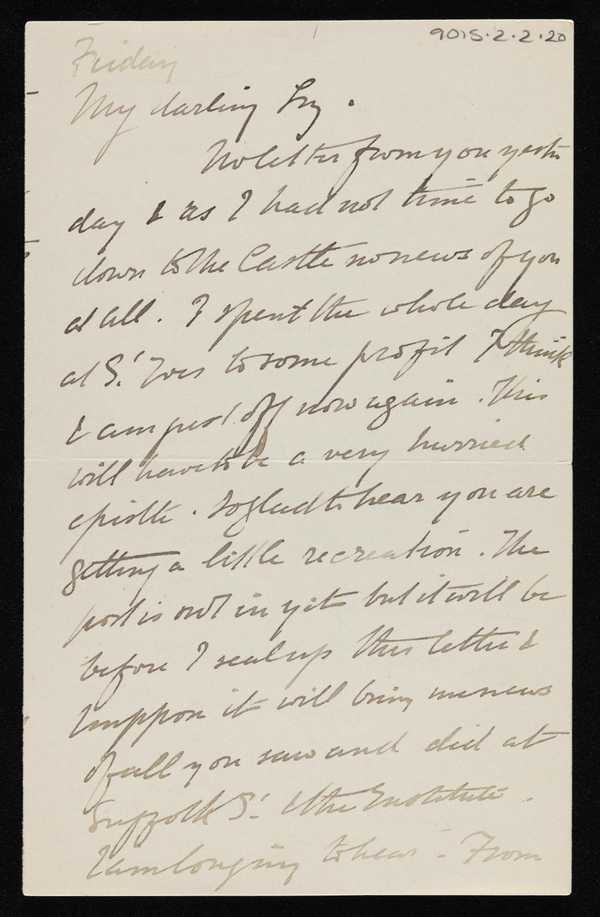 9015.2.2.20
Friday
My darling
No letter from you yester
day & as I had not time to go
down to the Castle no news of you
at all. I spent the whole day
at St. Ives to some profit I think
& am just off now again. This
will have to be a very hurried
epistle. So glad to hear you are
getting a little recreation. The
post is not in yet but it will be
before I seal up this letter &
I suppose it will bring me news
of all you saw and did at
Suffolk St. & the Institute.
I am longing to hear - From